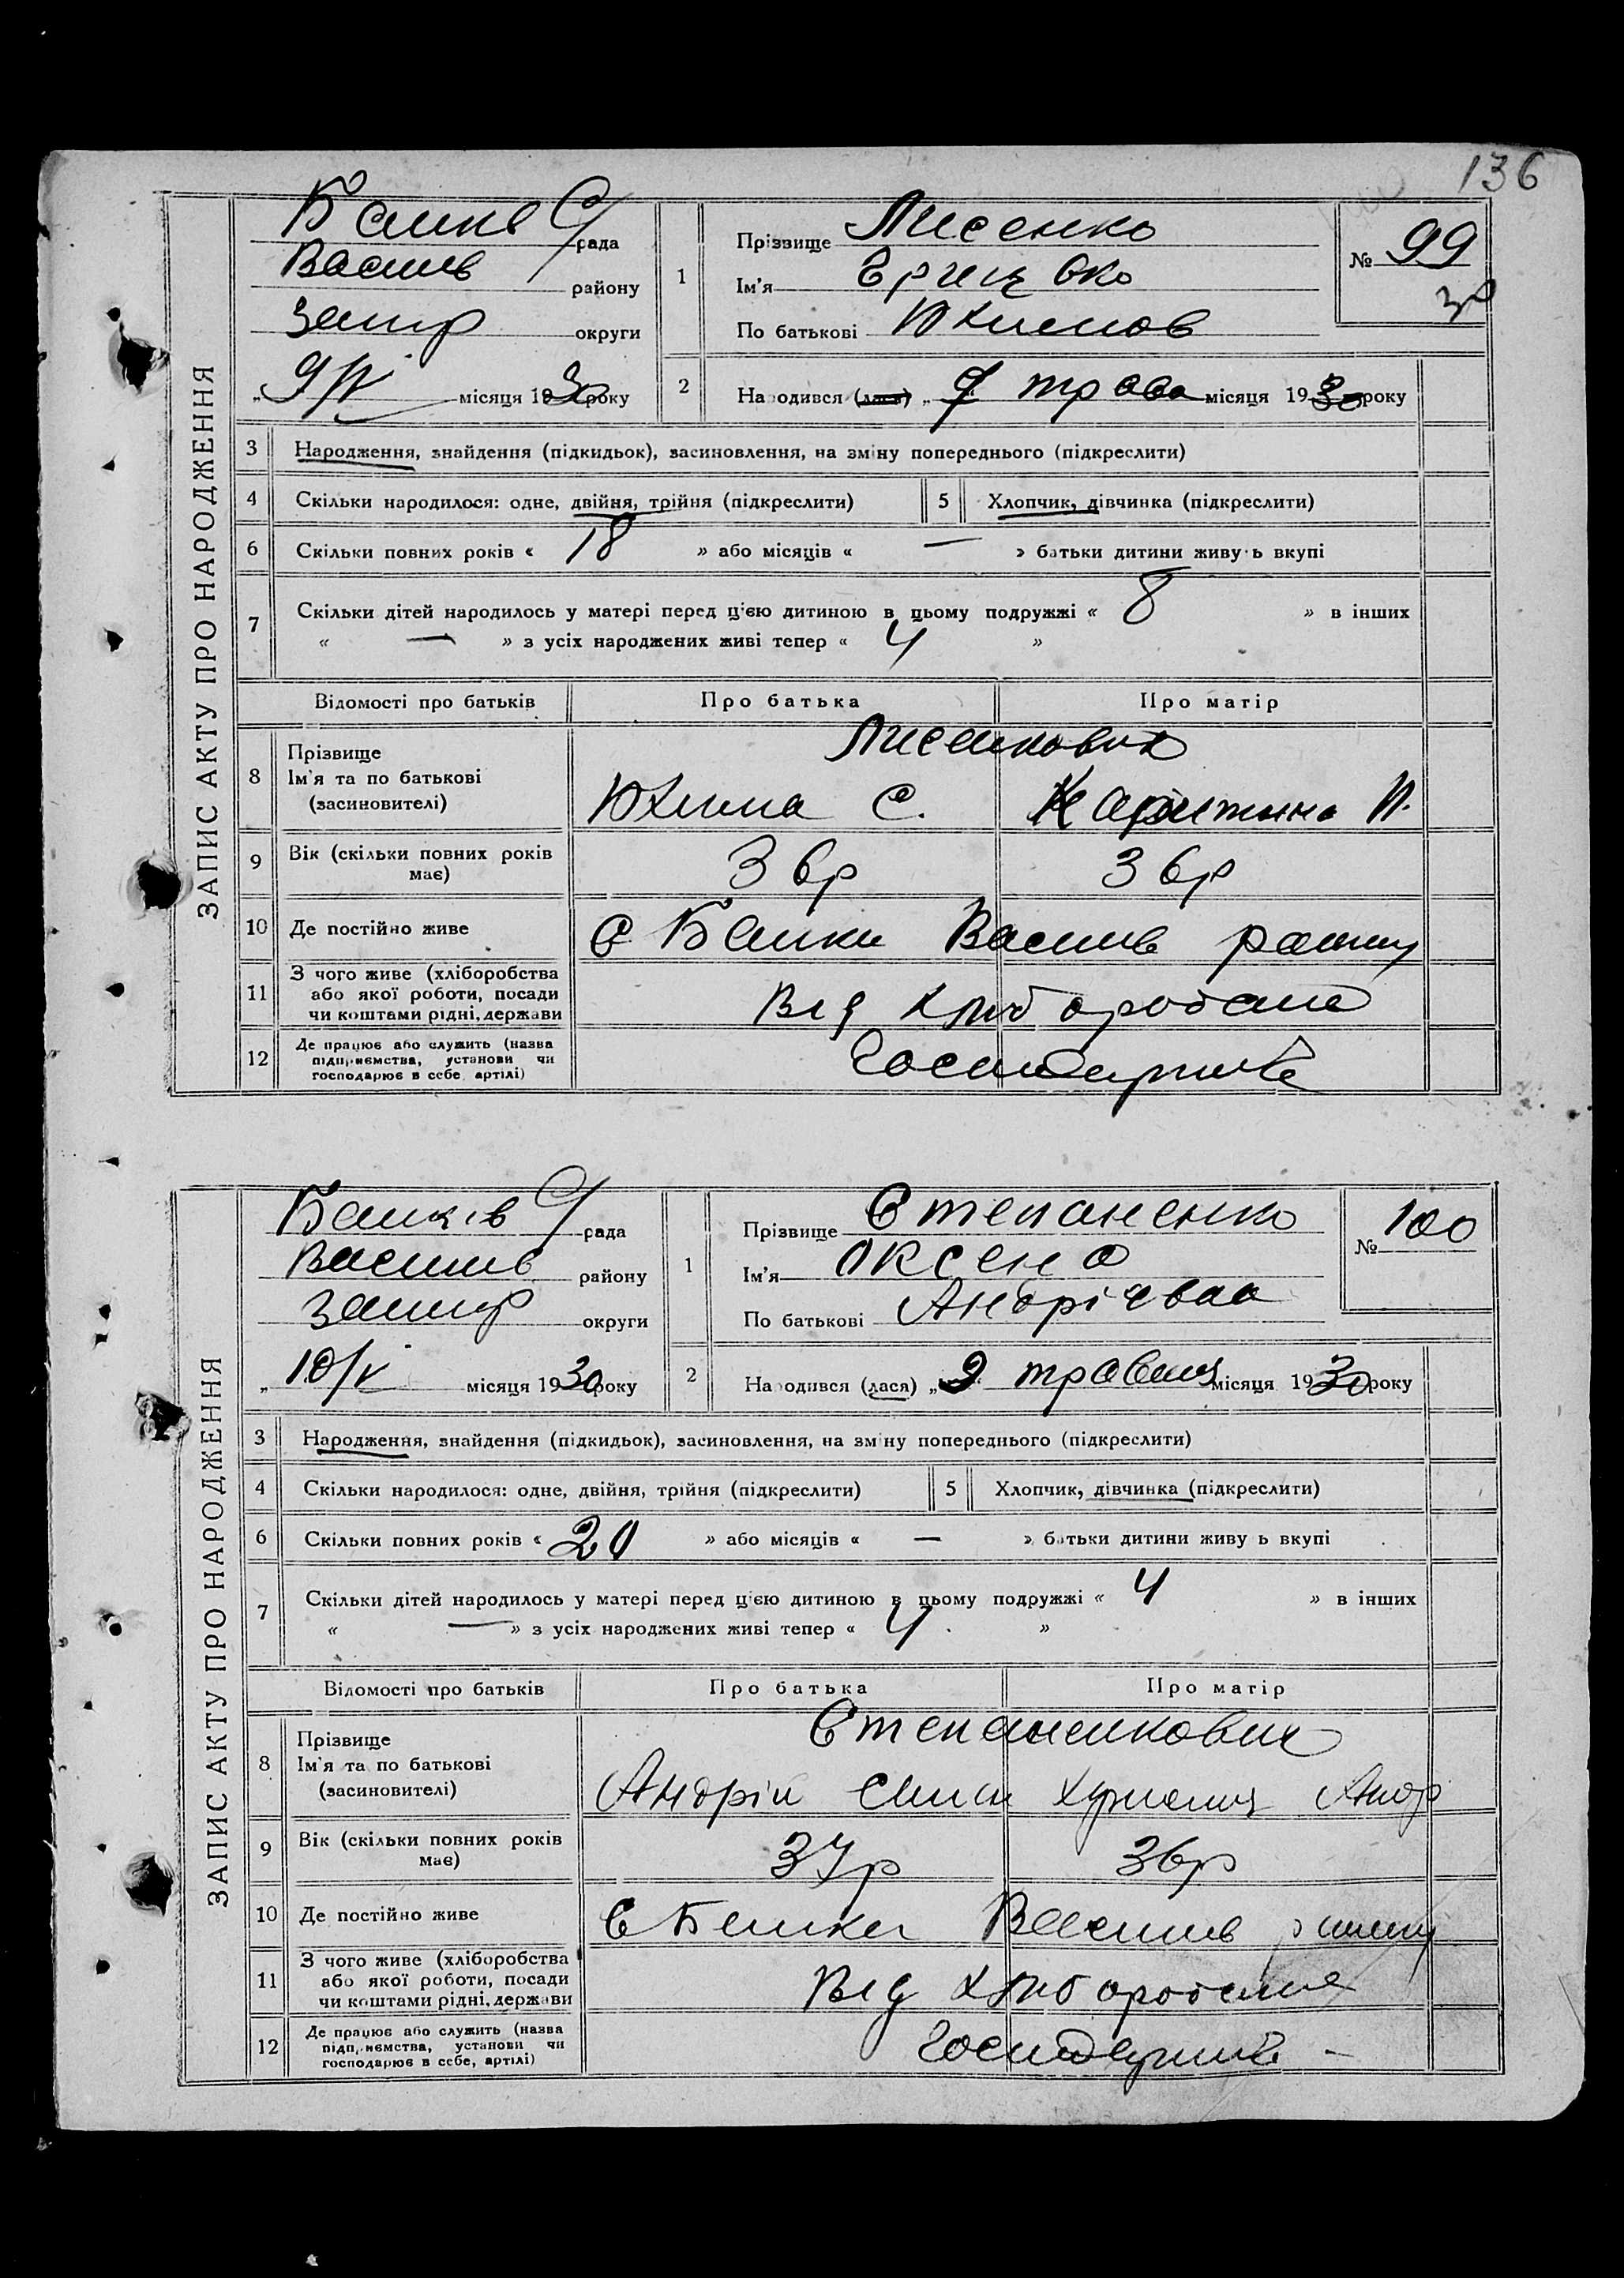 136
ЗАПИС АКТУ ПРО НАРОДЖЕННЯ
рада
Василів району
Запор округи
„ 9/V місяця 1930 року
1
Прізвище Лисенко
Ім'я
По батькові Юхимов
№ 99
2
Народився (лася) „ 7 трав місяця 1930 року
3 Народження, знайдення (підкидьок), засиновлення, на зміну попереднього (підкреслити)
4 Скільки народилося: одне, двійня, трійня (підкреслити) 5 Хлопчик, дівчинка (підкреслити)
6 Скільки повних років « 18 » або місяців « — » батьки дитини живуть вкупі
7 Скільки дітей народилось у матері перед цією дитиною в цьому подружжі « 8 » в інших
« — » з усіх народжених живі тепер « 4 »
Відомості про батьків Про батька Про матір
8 Прізвище
Ім'я та по батькові
(засиновителі)
Юхим С.
9 Вік (скільки повних років має) 36р 36р
10 Де постійно живе с Балки Василів району
11 З чого живе (хліборобства або якої роботи, посади чи коштами рідні, держави Від хліборобства
12 Де працює або служить (назва підприємства, установи чи господарює в себе, артілі)
ЗАПИС АКТУ ПРО НАРОДЖЕННЯ
Балків С/рада
Василів району
Запор округи
„ 10/V місяця 1930 року
1
Прізвище Степаненко
Ім'я Оксена
По батькові Андрієвна
№ 100
2
Народився (лася) „ 9 травня місяця 1930 року
3 Народження, знайдення (підкидьок), засиновлення, на зміну попереднього (підкреслити)
4 Скільки народилося: одне, двійня, трійня (підкреслити) 5 Хлопчик, дівчинка (підкреслити)
6 Скільки повних років « 20 » або місяців « — » батьки дитини живуть вкупі
7 Скільки дітей народилось у матері перед цією дитиною в цьому подружжі « 4 » в інших
« — » з усіх народжених живі тепер « 4 »
Відомості про батьків Про батька Про матір
8 Прізвище
Ім'я та по батькові
(засиновителі)
Андрій
9 Вік (скільки повних років має) 37р 36р
10 Де постійно живе с Балки Василів району
11 З чого живе (хліборобства або якої роботи, посади чи коштами рідні, держави Від хліборобства
12 Де працює або служить (назва підприємства, установи чи господарює в себе, артілі)